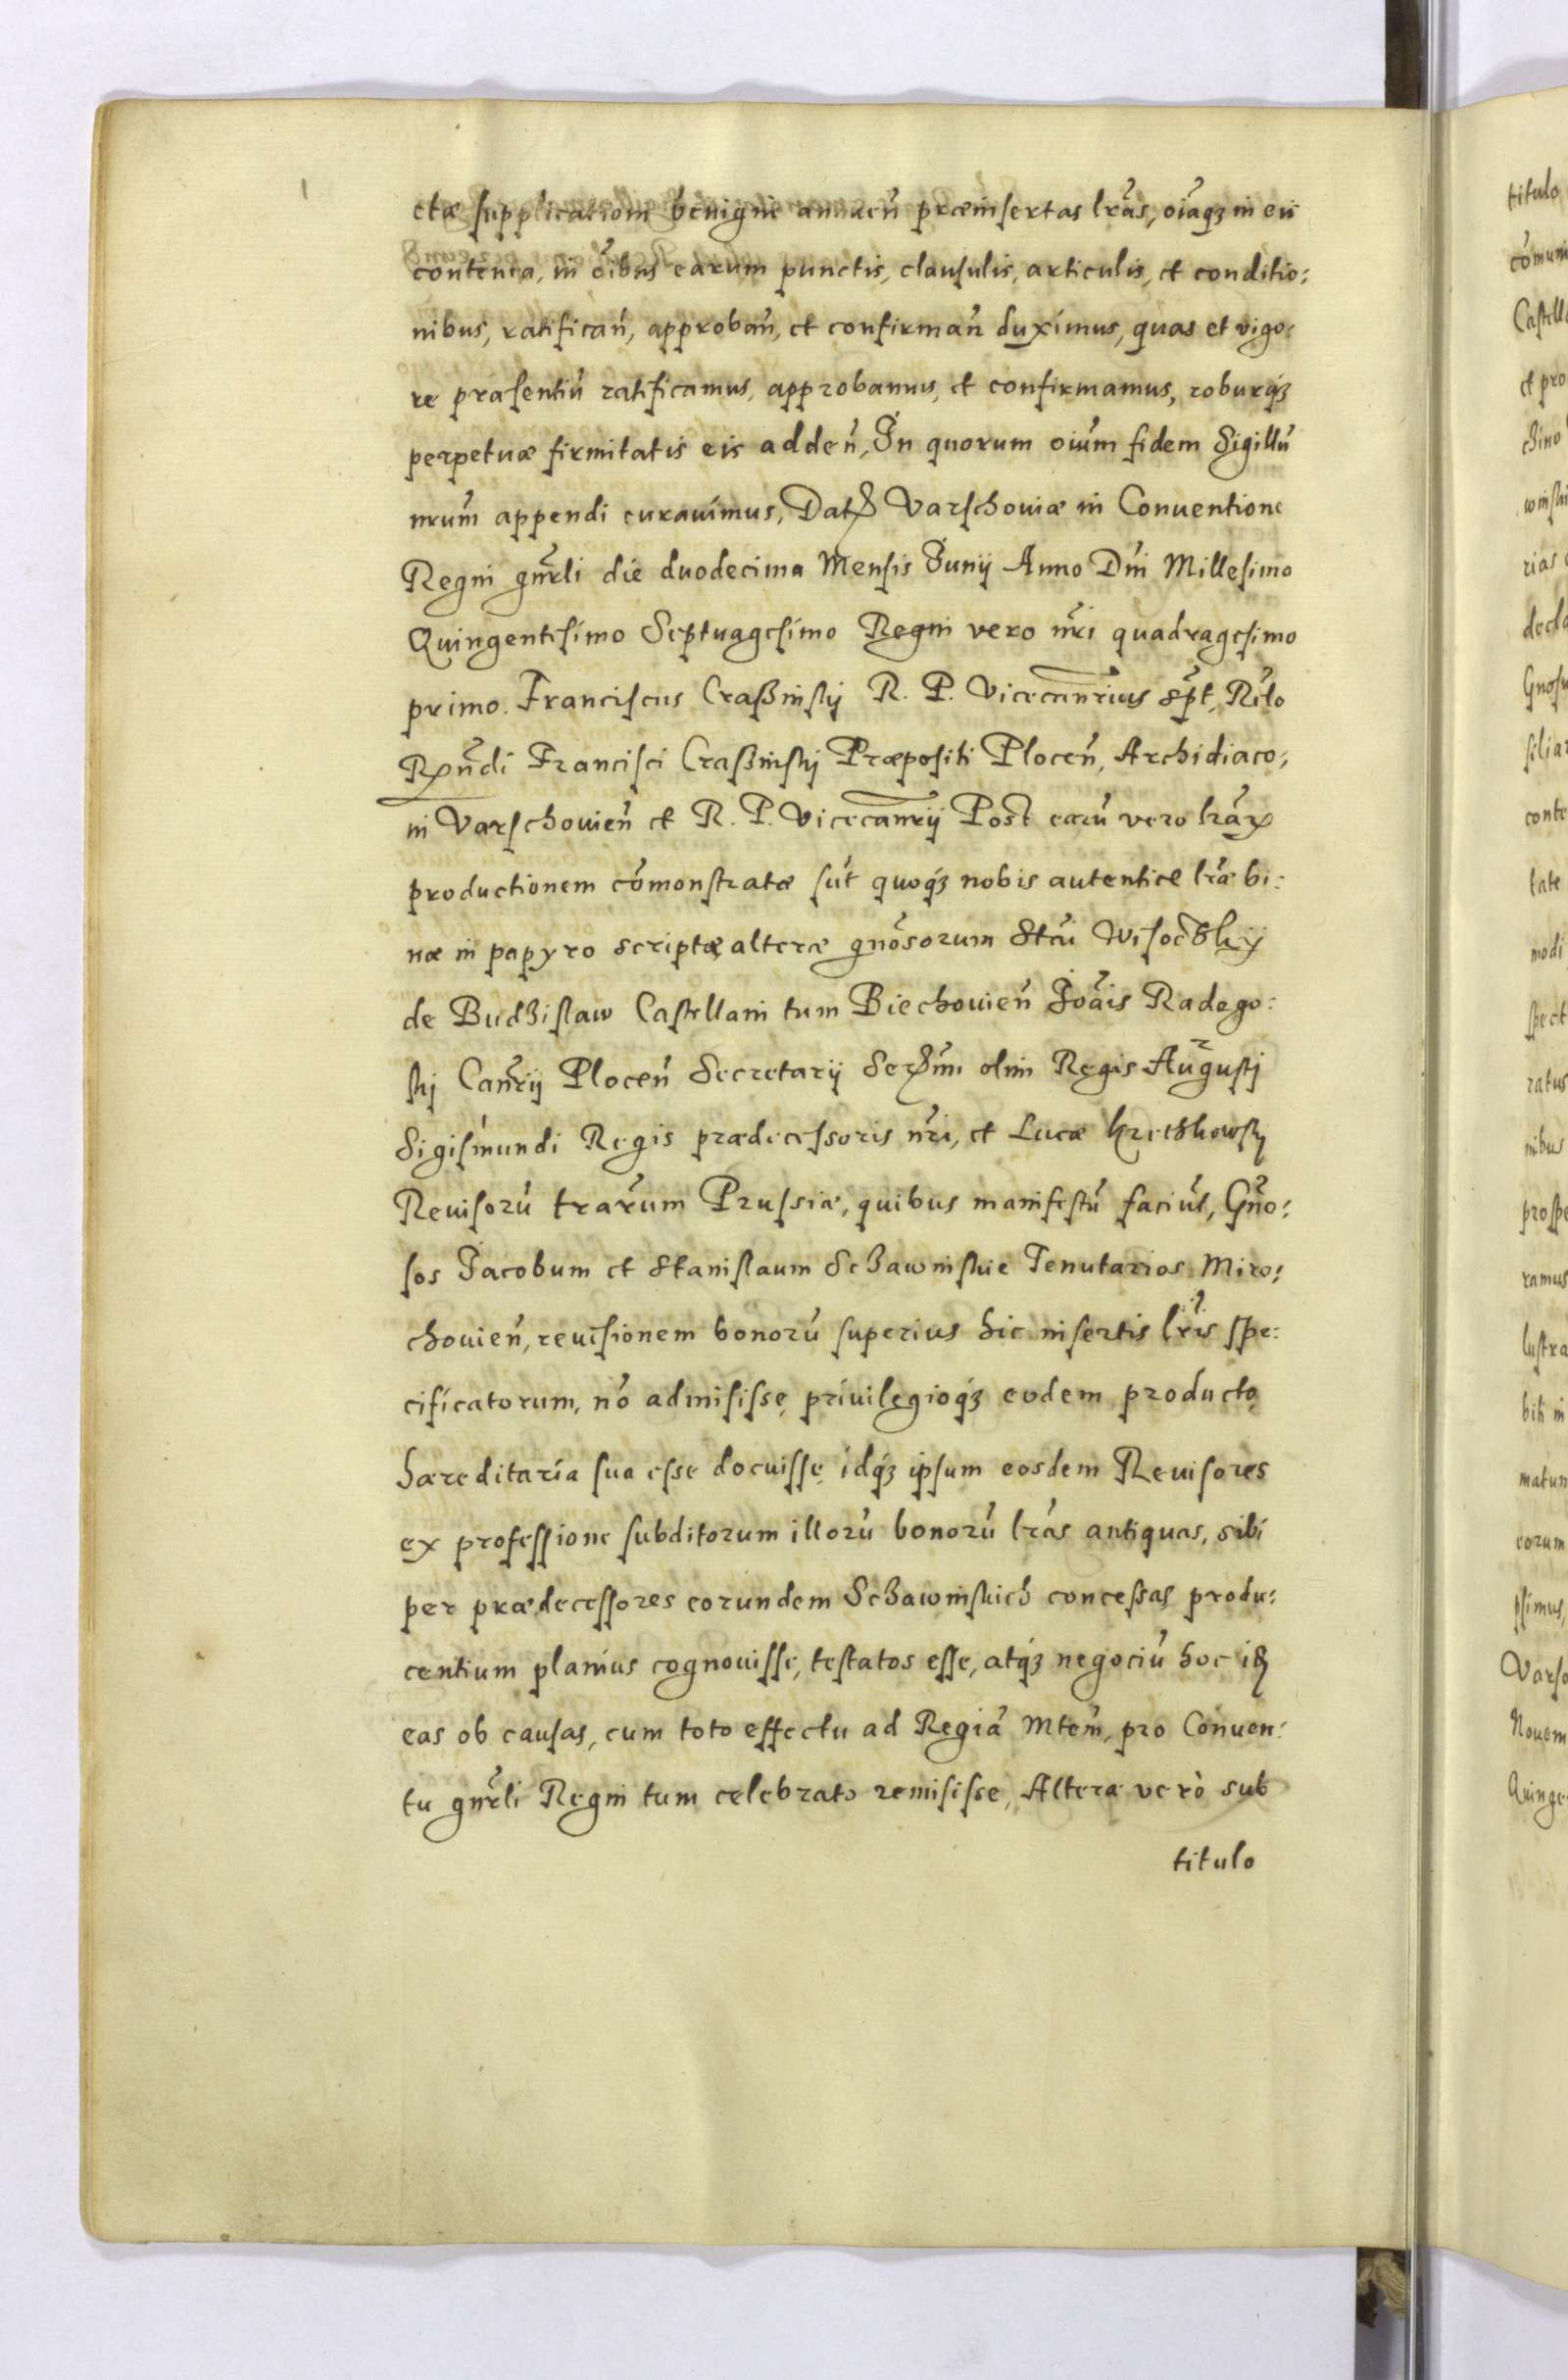 ctæ supplicationi benigne annuen̄ præinsertas lr̄as, oiāq₃ in eis
contenta, in oībus earum punctis, clausulis, articulis, et conditio:
nibus, ratifican̄, approban̄, et confirman̄ duximus, quas et vigo:
re præsentiū ratificamus, approbamus, et confirmamus, roburq₃
perpetuæ firmitatis eis adden̄, In quorum oiūm fidem Sigillū
nrūm appendi curauimus, Dat Varschouiæ in Conuentione
Regni gnr̄li die duodecima Mensis Junij Anno Dn̄i Millesimo
Quingentesimo Septuagesimo Regni vero nr̄i quadragesimo
primo. Franciscus Craßinskj R. P. Vicecan̄rius sp̄t, Rēlo
Rn̄di Francisci Craßinskj Præpositi Plocen̄, Archidiaco:
ni Varschouien̄ et R. P. Vicecan̄rij Post earū vero lr̄aꝝ
productionem cōmonstratæ sūt quoq₃ nobis autenticæ lr̄æ bi:
næ in papyro scriptæ, alteræ gnōsorum Stāi Wisoc̄zkij
de Budzislaw Castellani tum Biechouien̄ Joāis Radogo:
skj Can̄rij Plocen̄ Secretarij Ser̄mi olim Regis Augustj
Sigismundi Regis prædecessoris nr̄i, et Lucæ Kreczkowskj
Reuisorū trārum Prussiæ, quibus manifestū faciūt, Gnō:
sos Jacobum et Stanislaum Sczawinskie Tenutarios Miro:
chouien̄, reuisionem bonorū superius hic insertis lr̄is spe:
cificatorum, nō admisisse, priuilegioq₃ eodem producto
hæreditaria sua esse docuisse, idq₃ ipsum eosdem Reuisores
ex professione subditorum illorū bonorū lr̄as antiquas, sibi
per prædecessores eorundem Sczawinskich concessas produ:
centium planius cognouisse, testatos esse, atq₃ negociū hoc
eas ob causas, cum toto effectu ad Regiā Mtem̄, pro Conuen:
tu gnr̄li Regni tum celebrato remisisse, Alteræ verò sub
titulo